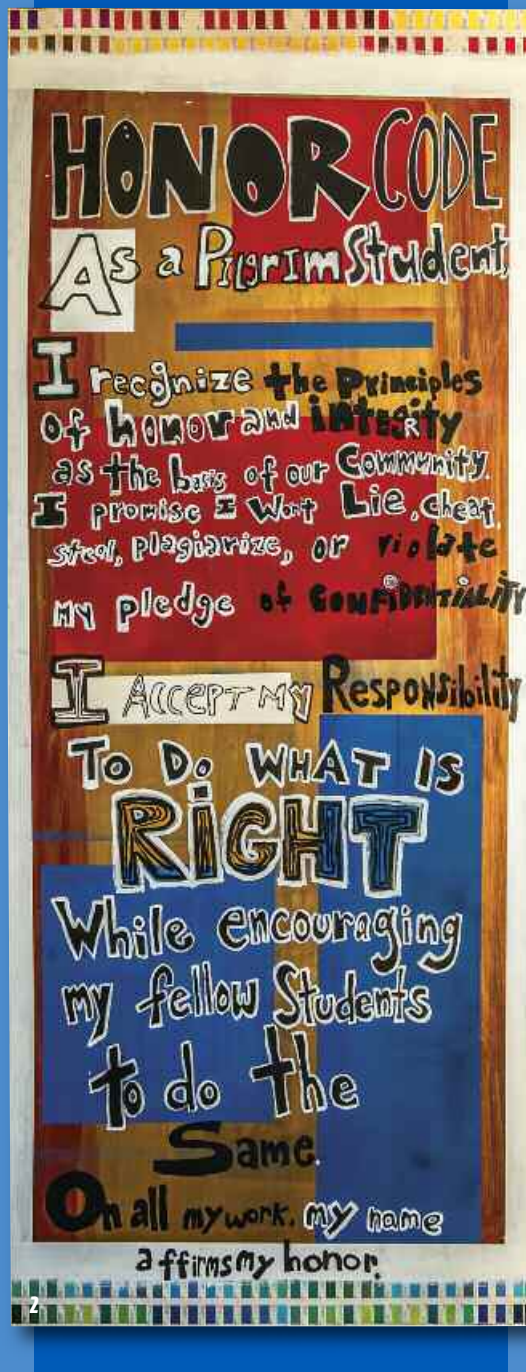 HONOR CODE
As a Pilgrim Student,
I recognize the Principles
of honor and integrity
as the basis of our Community.
I promise I Won't Lie, cheat,
steal, plagiarize, or violate
my pledge of CONFIDENTIALITY
I Accept My Responsibility
To Do WHAT IS
RiGHT
While encouraging
my fellow Students
to do the
Same.
On all my work, my name
affirms my honor.
2